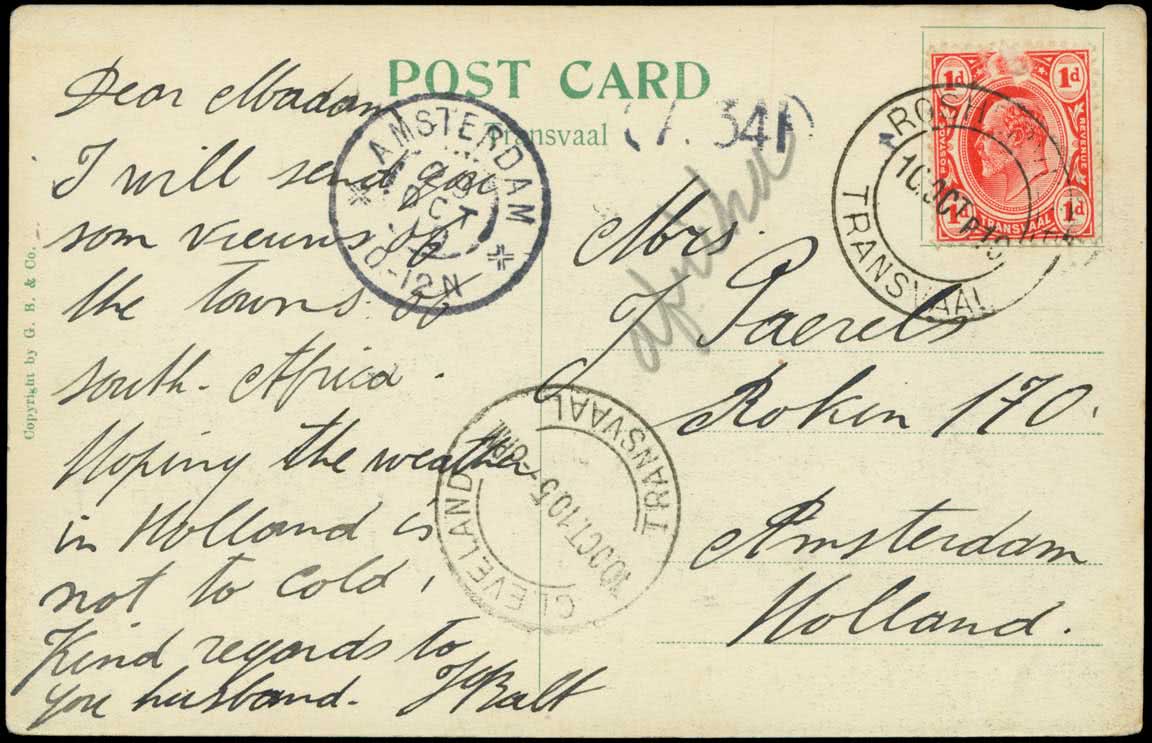 POST CARD
Transvaal
Copyright by G. B. & Co.
Dear Madam
I will send you
som vieuws of
the towns of
south-Africa.
Hoping the weather
in Holland is
not to cold,
Kind regards to
you husband.
Mrs.
J Paerels
Rokin 170.
Amsterdam
Holland.
AMSTERDAM
OCT
-12N
TRANSVAAL
10 OCT
CLEVELAND
TRANSVAAL
10 OCT 10 5-
1d
1d
POSTAGE
REVENUE
1d
1d
TRANSVAAL